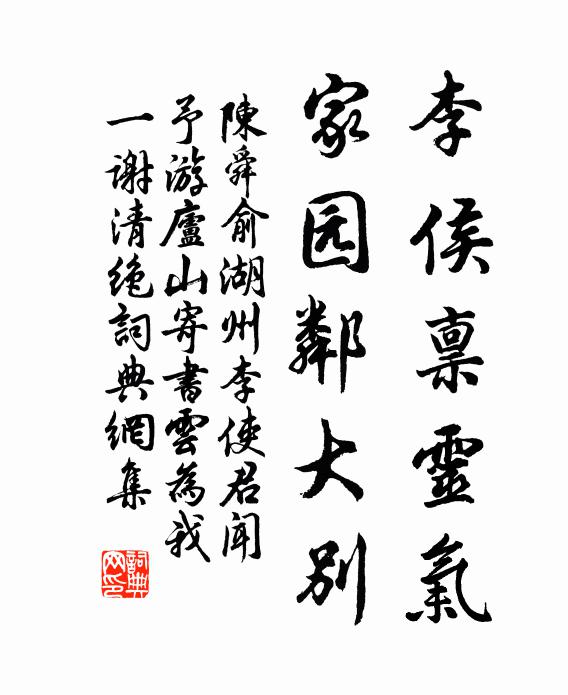 李侯禀靈氣
家园鄰大別
陳舜俞湖州李使君聞
予游廬山寄書雲為我
一谢清绝詞典網集
詞典
网印